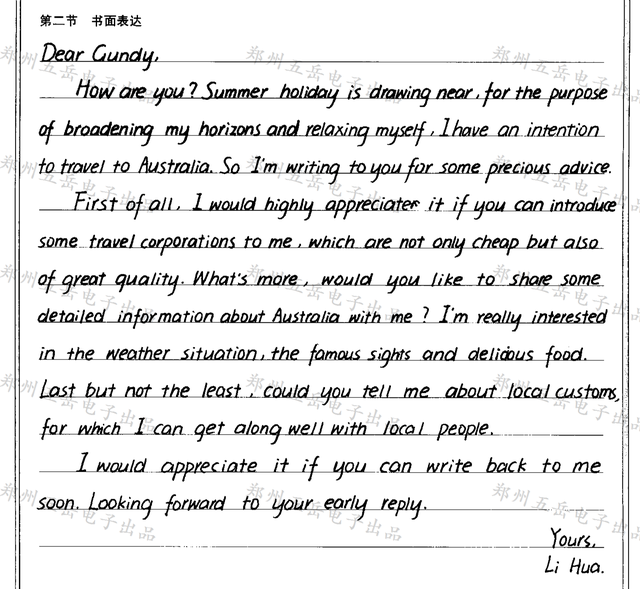 第二节 书面表达
Dear Gundy,
How are you? Summer holiday is drawing near, for the purpose
of broadening my horizons and relaxing myself, I have an intention
to travel to Australia. So I'm writing to you for some precious advice.
First of all, I would highly appreciate it if you can introduce
some travel corporations to me, which are not only cheap but also
of great quality. What's more, would you like to share some
detailed information about Australia with me? I'm really interested
in the weather situation, the famous sights and delicious food.
Last but not the least, could you tell me about local customs,
for which I can get along well with local people.
I would appreciate it if you can write back to me
soon. Looking forward to your early reply.
Yours,
Li Hua.
郑州五岳电子出品
郑州五岳电子出品
郑州五岳电子出品
郑州五岳电子出品
郑州五岳电子出品
郑州五岳电子出品
郑州五岳电子出品
郑州五岳电子出品
郑州五岳电子出品
郑州五岳电子出品
郑州五岳电子出品
郑州五岳电子出品